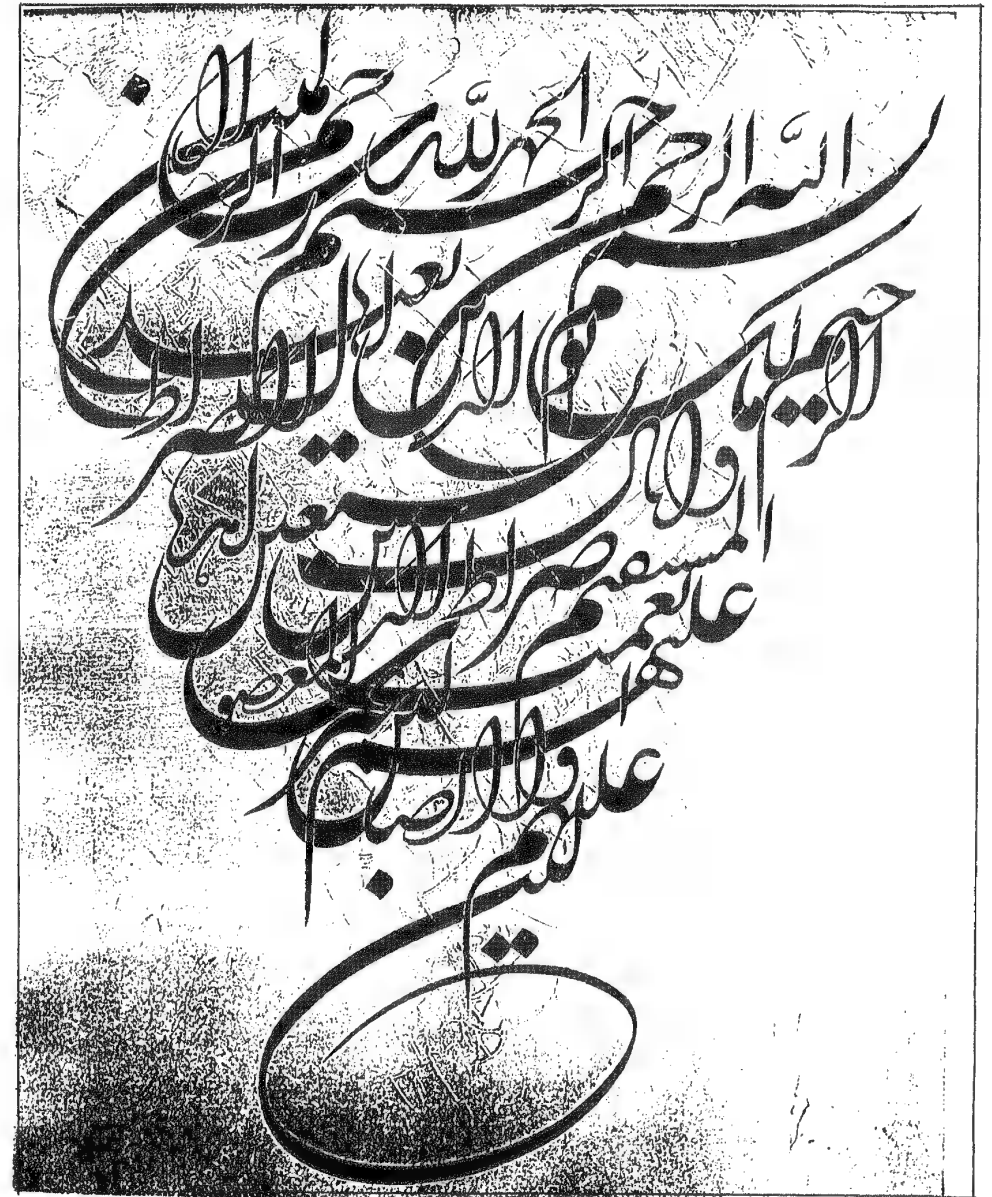 بسم الله الرحمن الرحیم الحمد لله رب العالمین
الرحمن الرحیم مالک یوم الدین ایاک نعبد
وایاک نستعین اهدنا الصراط
المستقیم صراط الذین
انعمت علیهم غیر المغضوب
علیهم ولا الضالین